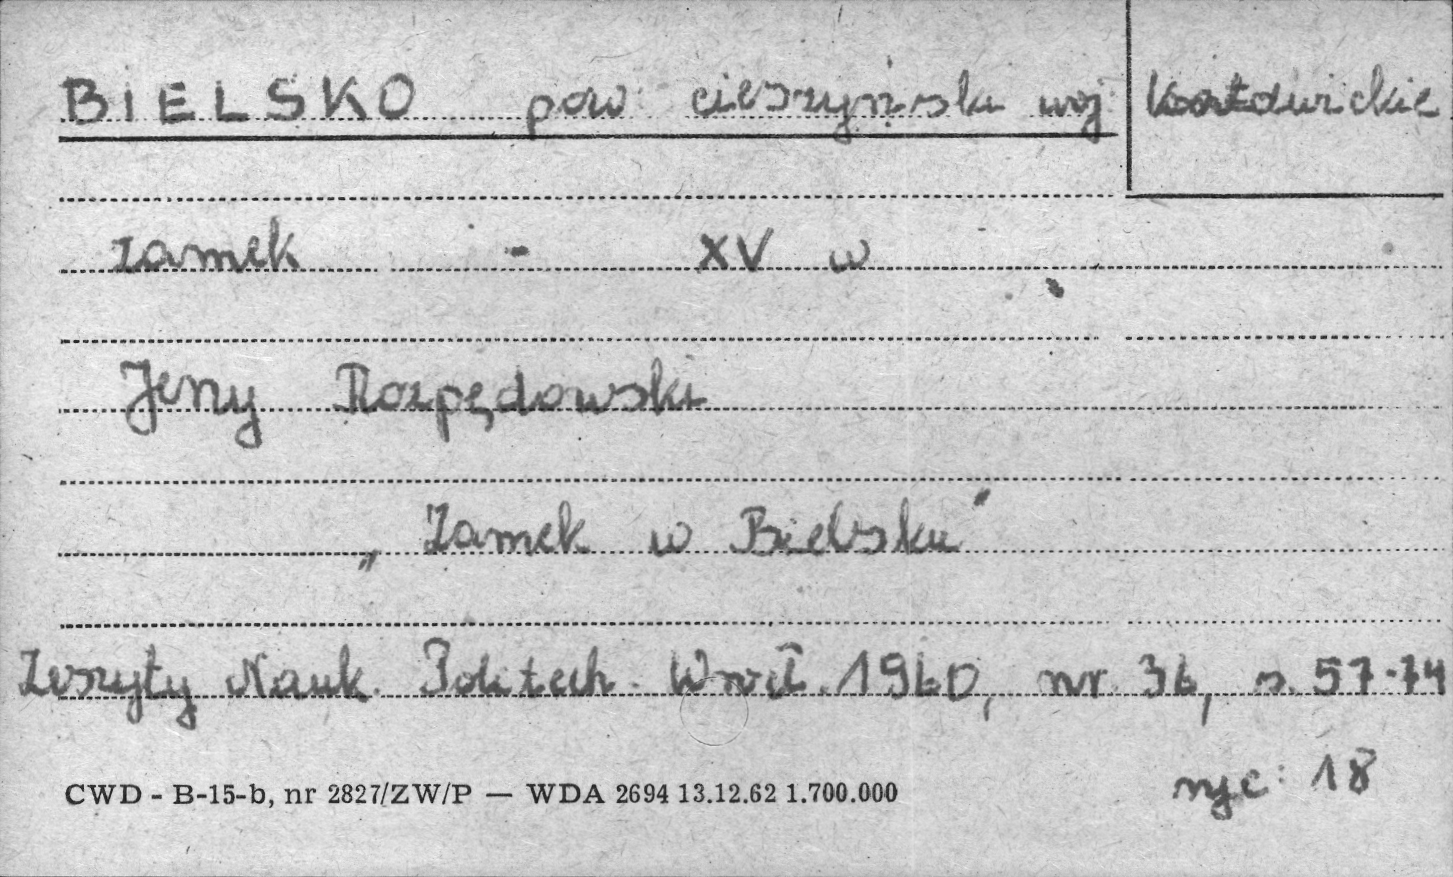 BIELSKO pow cieszyński woj katowickie
zamek - XV w
Jerzy Rozpędowski
„Zamek w Bielsku"
Zeszyty Nauk. Politech. Wrocł. 1960, nr 36, s. 57-74
ryc: 18
CWD - B-15-b, nr 2827/ZW/P — WDA 2694 13.12.62 1.700.000